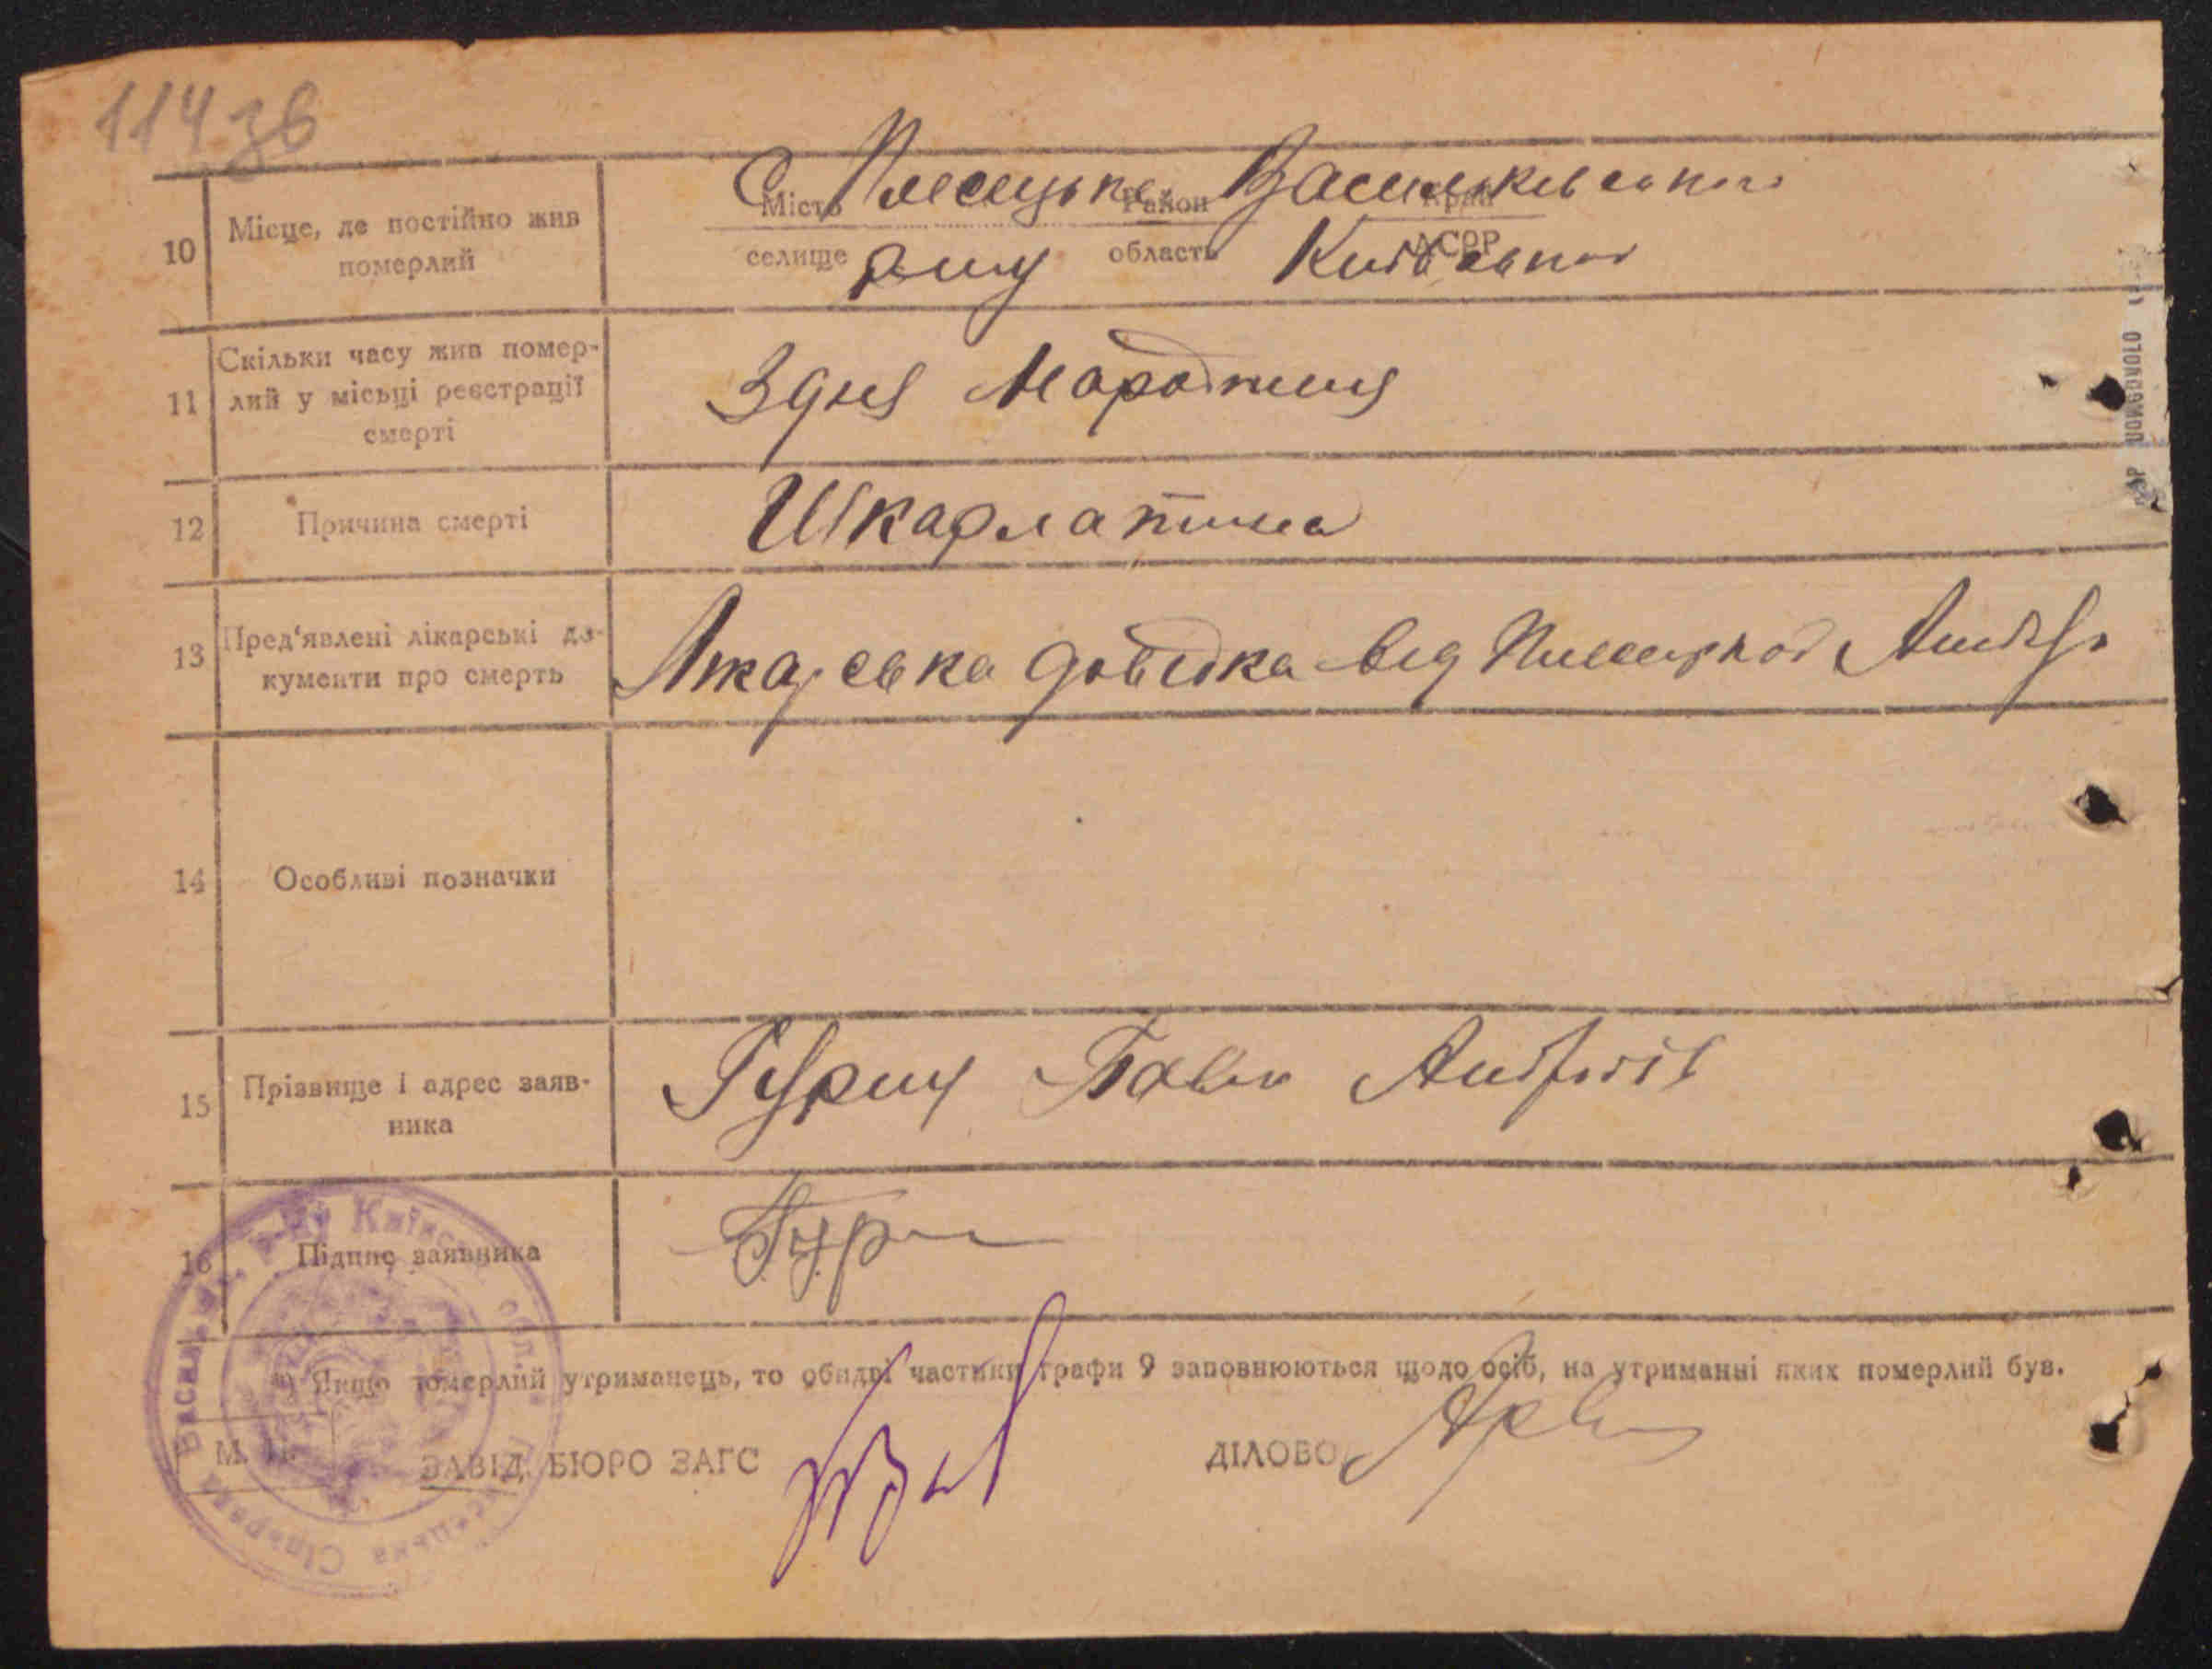 114 зв
10 Місце, де постійно жив померлий
С Плесецьке Васильківського
Місто Район Край
селище область АСРР
р-ну Київської
11 Скільки часу жив померлий у місьці реєстрації смерті
З дня Народження
12 Причина смерті
Шкарлатина
13 Пред'явлені лікарські документи про смерть
Лікарська довідка від Плесецької
14 Особливі позначки
15 Прізвище і адрес заявника
Гурин Павло Андріїв
16 Підпис заявника
Гури
Якщо померлий утриманець, то обидві частини графи 9 заповнюються щодо осіб, на утриманні яких померлий був.
М. П.
ЗАВІД. БЮРО ЗАГС
ДІЛОВОД
Васильк. р-ну Київськ. обл. Плесецька Сільрада